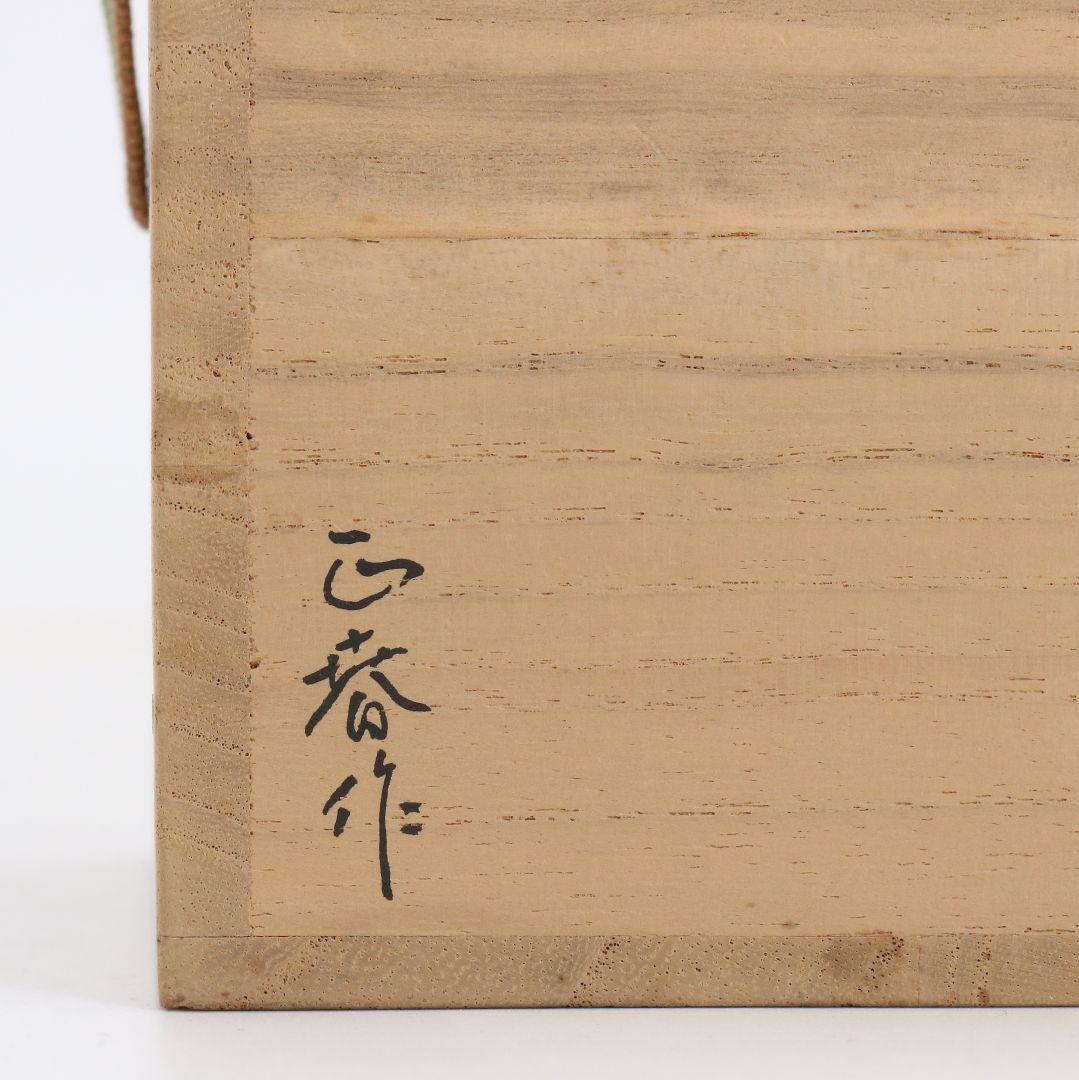 正春作